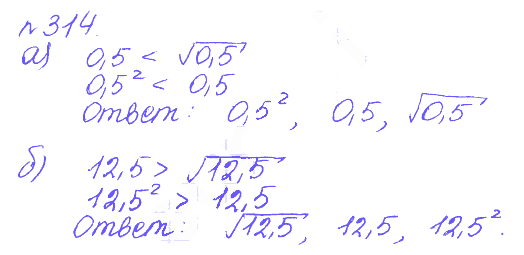 № 314.
а) 0,5 < √0,5
0,5² < 0,5
Ответ: 0,5², 0,5, √0,5
б) 12,5 > √12,5
12,5² > 12,5
Ответ: √12,5, 12,5, 12,5².